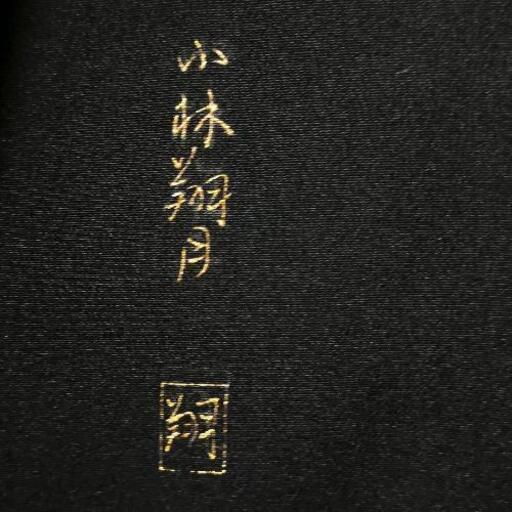 小林翔月
翔